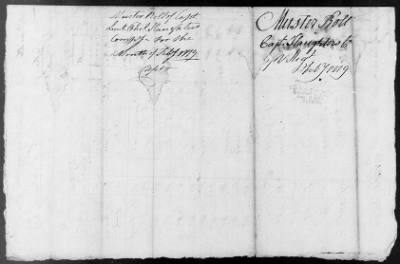 Muster Roll of Capt
Lieut Phil Slaughters
Company for the
Month of Feby 1779
Muster Roll
Capt Slaughters Co
7 V Regt
Feby 1779